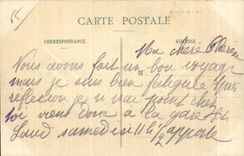 CARTE POSTALE
CORRESPONDANCE
ADRESSE
Ma chère
Nous avons fait un bon voyage
mais je suis bien fatiguée
reflexion je n'irai point chez
toi viens donc à la gare St
Laud samedi à 11 h 1/2 apporte